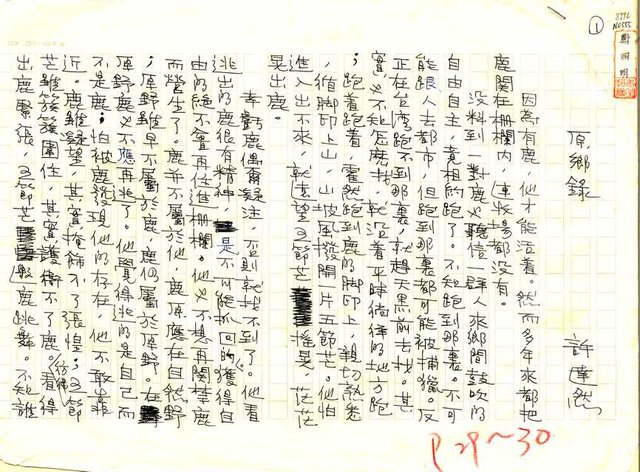 8396
NU555
①
原鄉錄
許達然
因為有鹿，他才能活着。然而多年來都把
鹿関在柵欄內，連牧場都沒有。
沒料到一對鹿必聽信一群人來鄉間鼓吹的
自由自主，竟相約跑了。不知跑到那裏。不可
能跟人去都市，但跑到那裏都可能被捕獵。反
正在台灣跑不到那裏，就趕天黑前去找。其
實也不知怎麼找，就沿着平時徜徉的地方跑
；跑着跑着，霍然跑到鹿的腳印上，親切熟悉
，循腳印上山，山坡風撥開一片五節芒。他怕
進入出不來，就遠望五節芒搖晃，茫茫
晃出鹿。
幸虧鹿偶爾凝注，否則就找不到了。他看
逃出的鹿很有精神，是不可能抓回的。獲得自
由的絕不會再住進柵欄。他也不想再関養鹿
而營生了。鹿並不屬於他，鹿原應在自然野
；原野雖早不屬於鹿，鹿仍屬於原野。在
原野鹿必不應再逃了。他覺得逃的是自己而
不是鹿；怕被鹿發現他的存在，他不敢靠
近。鹿雖凝望，其實掩飾不了張惶；五節
芒雖簇簇圍住，其實護衛不了鹿。看得
出鹿緊張，五節芒彷彿般鹿跳舞。不知誰
P 29～30